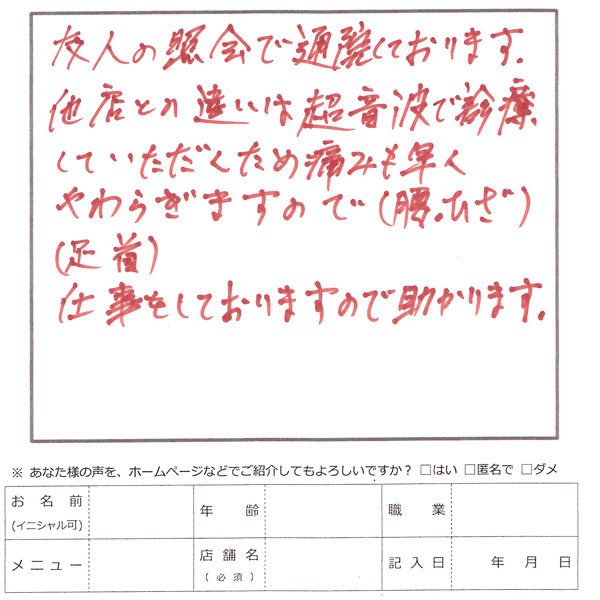 友人の照会で通院しております。
他店との違いは超音波で診療
していただくため痛みも早く
やわらぎますので(腰。ひざ)
(足首)
仕事をしておりますので助かります。
※ あなた様の声を、ホームページなどでご紹介してもよろしいですか? □はい □匿名で □ダメ
お名前 年齢 職業
(イニシャル可)
メニュー 店舗名 記入日 年 月 日
(必須)